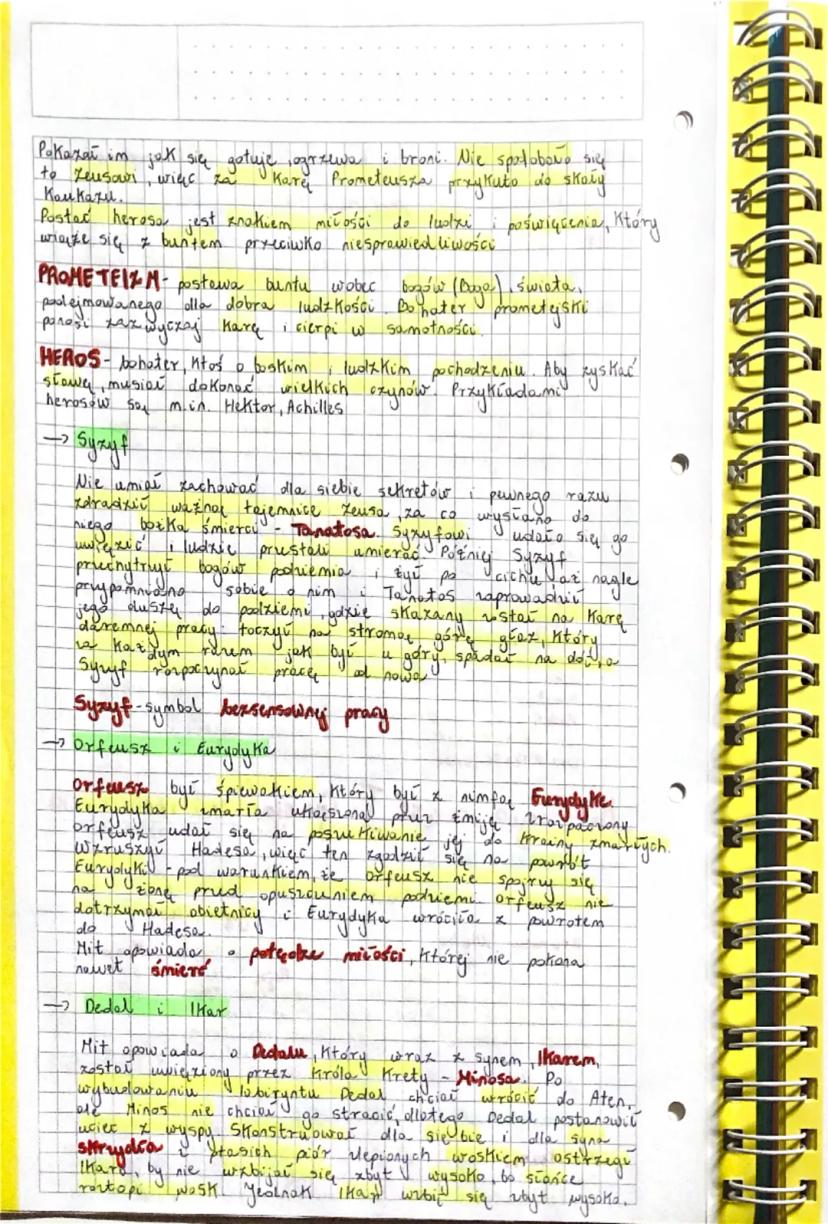 Pokazał im jak się gotuje, ogrzewa i broni. Nie spodobało się
to Zeusowi, więc za karę Prometeusza przykuto do skały
Kaukazu.
Postać herosa jest znakiem miłości do ludzi i poświęcenia, który
wiąże się z buntem przeciwko niesprawiedliwości
PROMETEIZM - postawa buntu wobec bogów (Boga), świata,
podejmowanego dla dobra ludzkości. Bohater prometejski
ponosi zazwyczaj karę i cierpi w samotności.
HEROS - bohater, ktoś o boskim i ludzkim pochodzeniu. Aby zyskać
sławę, musiał dokonać wielkich czynów. Przykładami
herosów są m.in. Hektor, Achilles
→ Syzyf
Nie umiał zachować dla siebie sekretów i pewnego razu
zdradził ważną tajemnicę Zeusa, za co wysłano do
niego bożka śmierci - Tanatosa. Syzyfowi udało się go
uwięzić i ludzie przestali umierać. Później Syzyf
przechytrzył bogów podziemia i żył po cichu, aż nagle
przypomniano sobie o nim i Tanatos zaprowadził
jego duszę do podziemi, gdzie skazany został na karę
daremnej pracy: toczył na stromą górę głaz, który
za każdym razem jak był u góry, spadał na dół, a
Syzyf rozpoczynał pracę od nowa
Syzyf - symbol bezsensownej pracy
→ Orfeusz i Eurydyka
Orfeusz był śpiewakiem, który był z nimfą Eurydyke.
Eurydyka zmarła ukąszona przez żmiję. Zrozpaczony
Orfeusz udał się na poszukiwanie jej do krainy zmarłych.
Wzruszył Hadesa, więc ten zgodził się na powrót
Eurydyki - pod warunkiem, że Orfeusz nie spojrzy się
na żonę przed opuszczeniem podziemi. Orfeusz nie
dotrzymał obietnicy i Eurydyka wróciła z powrotem
do Hadesa.
Mit opowiada o potędze miłości, której nie pokona
nawet śmierć
→ Dedal i Ikar
Mit opowiada o Dedalu, który wraz z synem, Ikarem,
został uwięziony przez króla Krety - Minosa. Po
wybudowaniu labiryntu Dedal chciał wrócić do Aten,
ale Minos nie chciał go stracić, dlatego Dedal postanowił
uciec z wyspy. Skonstruował dla siebie i dla syna
skrzydła z ptasich piór zlepionych woskiem ostrzegł
Ikara, by nie wzbijał się zbyt wysoko, bo słońce
roztopi wosk. Jednak Ikar wzbił się zbyt wysoko.